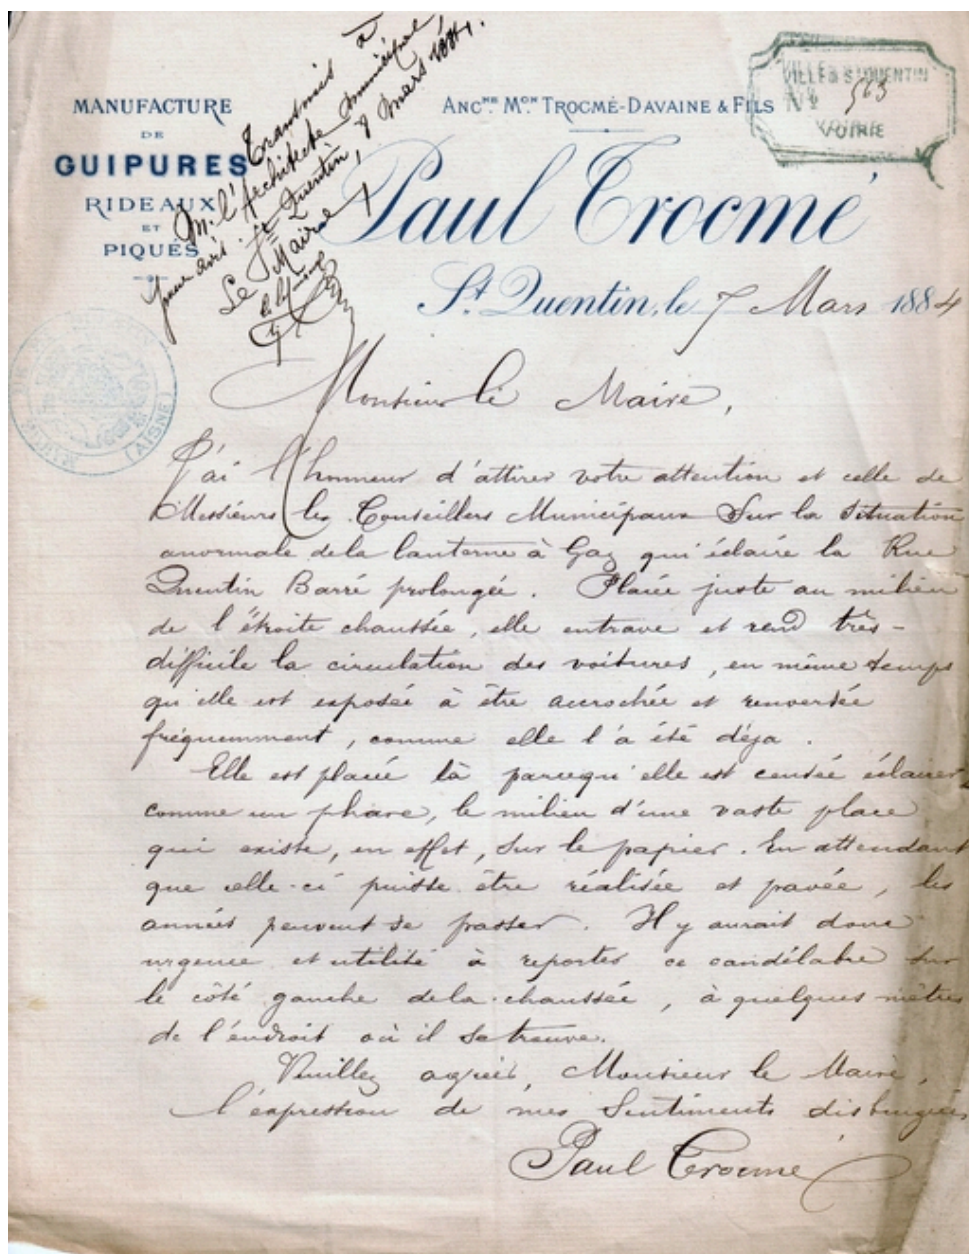 MANUFACTURE
DE
GUIPURES
RIDEAUX
ET
PIQUÉS
Transmis à
M. l'Architecte Municipal
pour avis. St Quentin, 8 Mars 1884.
Le Maire
ANCNE MON TROCMÉ-DAVAINE & FILS
VILLE DE ST QUENTIN
No 563
VOIRIE
Paul Trocmé
St Quentin, le 7 Mars 1884
(AISNE)
Monsieur le Maire,
J'ai l'honneur d'attirer votre attention et celle de
Messieurs les Conseillers Municipaux Sur la Situation
anormale de la lanterne à Gaz qui éclaire la Rue
Quentin Barré prolongée. Placée juste au milieu
de l'étroite chaussée, elle entrave et rend très-
difficile la circulation des voitures, en même temps
qu'elle est exposée à être accrochée et renversée
fréquemment, comme elle l'a été déja.
Elle est placée là parcequ'elle est censée éclairer
comme un phare, le milieu d'une vaste place
qui existe, en effet, sur le papier. En attendant
que celle-ci puisse être réalisée et pavée, les
années peuvent se passer. Il y aurait donc
urgence et utilité à reporter ce candélabre sur
le côté gauche de la chaussée, à quelques mètres
de l'endroit où il se trouve.
Veuillez agréer, Monsieur le Maire,
l'expression de mes Sentiments distingués
Paul Trocmé